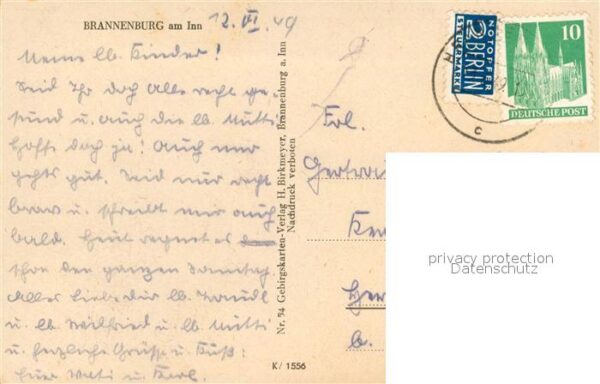 BRANNENBURG am Inn
12. VI. 49
Meine lb. Kinder!
Seid Ihr doch alle recht ge-
sund u. auch die lb. Mutti
hoffe doch ja! Auch mir
gehts gut. Seid nur recht
brav u. schreibt mir auch
bald. Heut regnet es
schon den ganzen Sonntag.
Alles Liebe dir lb. Traudl
u. lb. Wilfried u. lb. Mutti
u. herzliche Grüsse u. Kuß:
Euer Vati u. Karl.
Nr. 54 Gebirgskarten-Verlag H. Birkmeyer, Brannenburg a. Inn
Nachdruck verboten
K/ 1556
NOTOPFER
2 BERLIN
STEUERMARKE
10
DEUTSCHE POST
c
Frl.
b.
privacy protection
Datenschutz